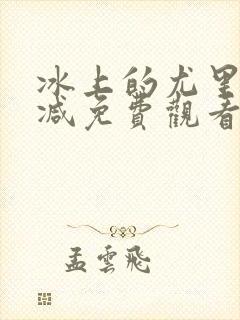 冰上的尤里
减免費觀看
孟雲飛